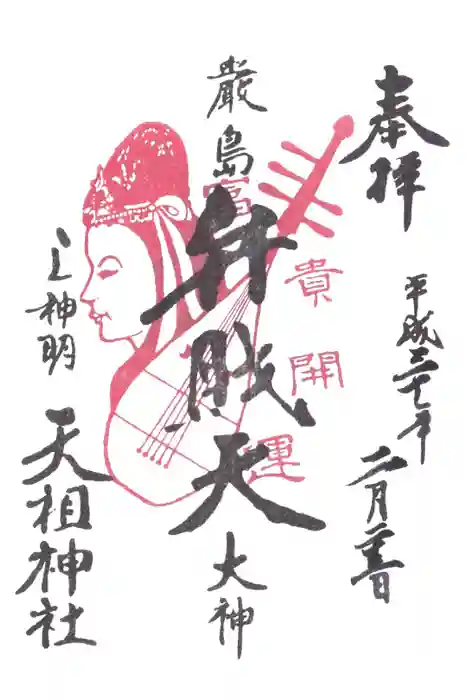 奉拝
平成三十年
二月
日
富貴開運
厳島
弁財天
大神
上神明
天祖神社